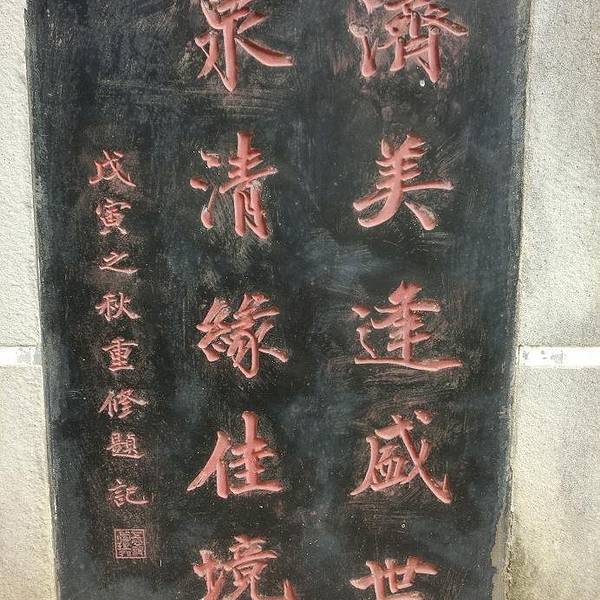 濟美逢盛世
泉清緣佳境
戊寅之秋重修題記